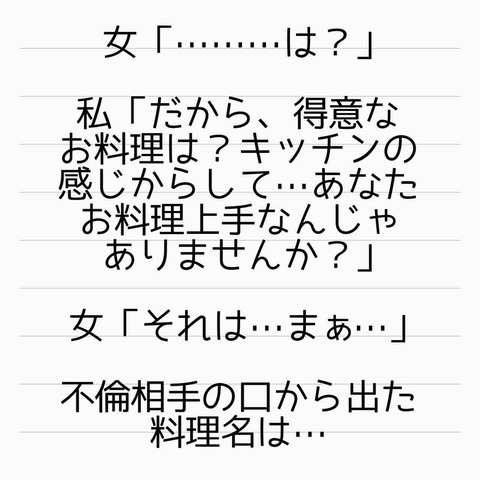 女「………は？」
私「だから、得意な
お料理は？キッチンの
感じからして…あなた
お料理上手なんじゃ
ありませんか？」
女「それは…まぁ…」
不倫相手の口から出た
料理名は…